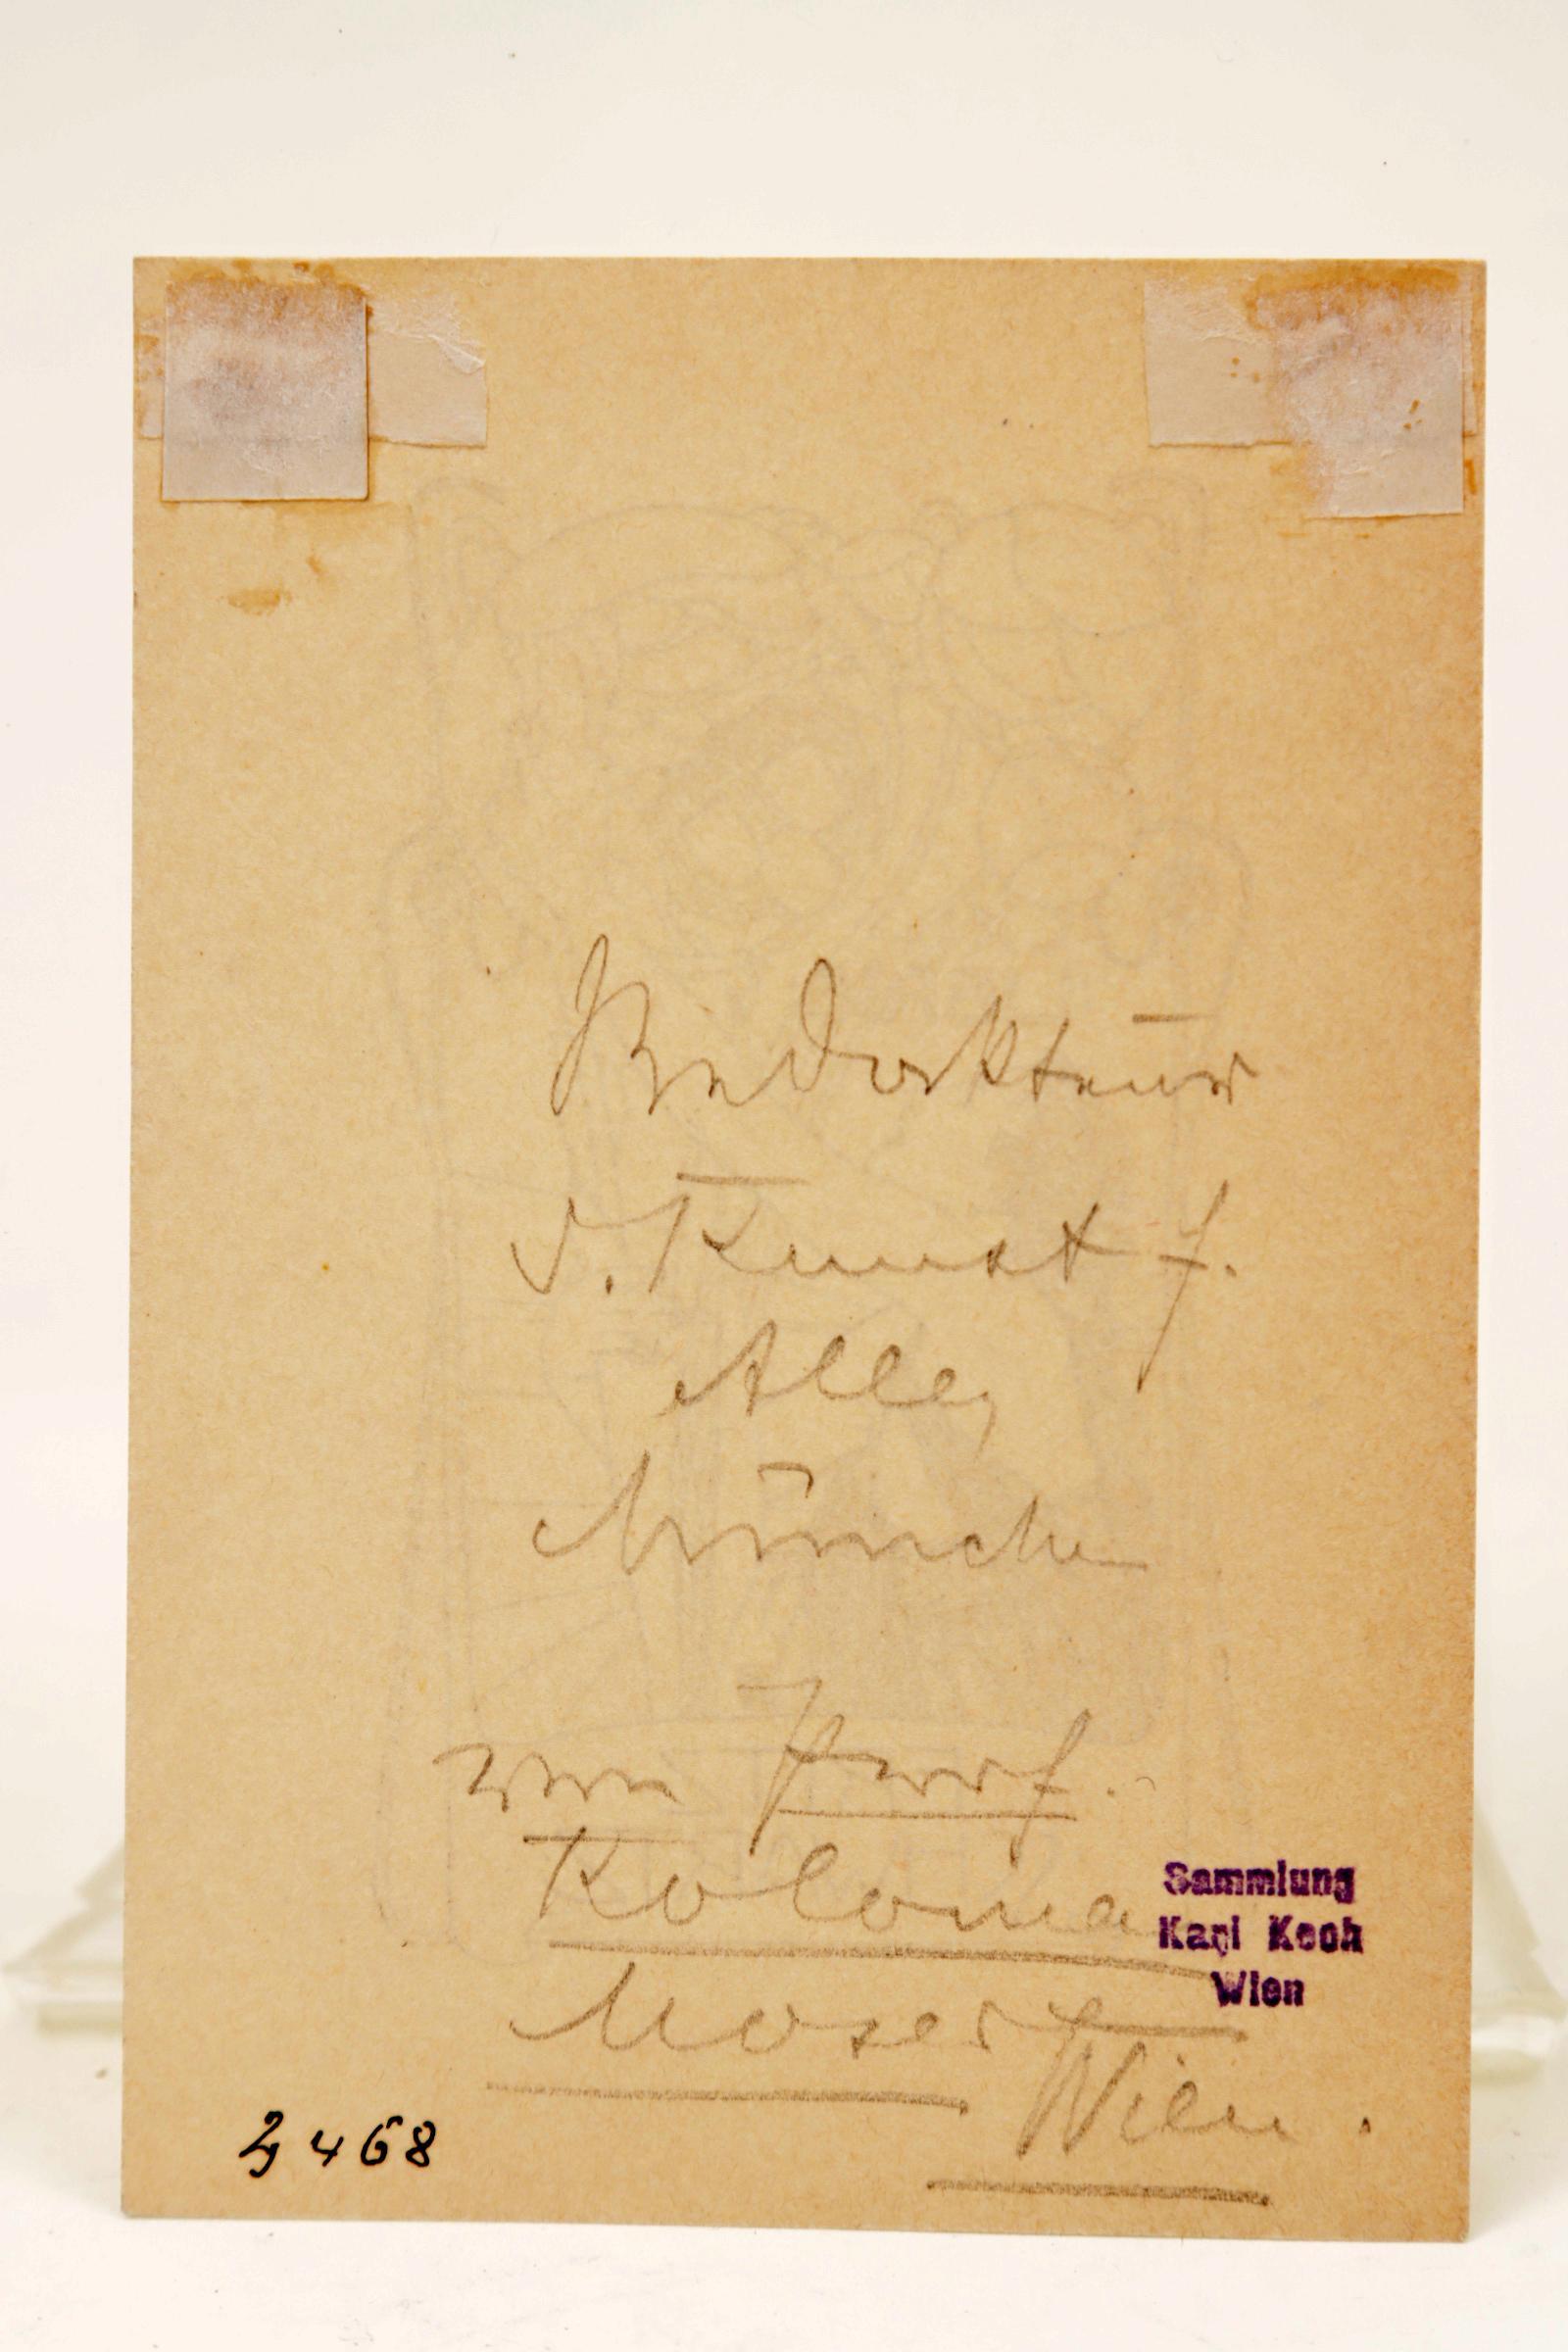 Redakteur
d. Kunst f.
Alle,
München
von Prof.
Koloman
Moser
Wien.
Sammlung
Karl Koch
Wien
468